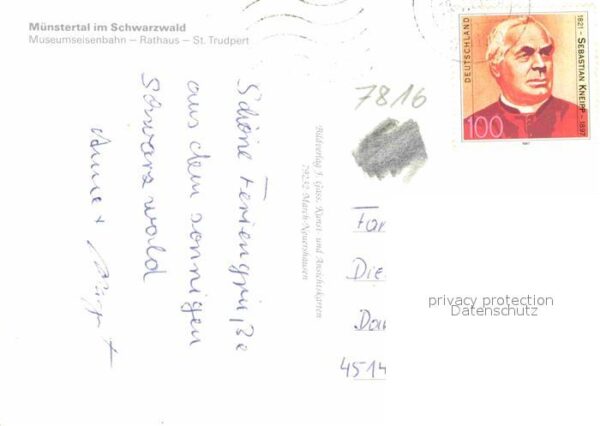 Münstertal im Schwarzwald
Museumseisenbahn – Rathaus – St. Trudpert
Schöne Feriengrüße
aus dem sonnigen
Schwarzwald
Anne +
7816
Bildverlag J. Gass, Kunst- und Ansichtskarten
79232 March-Neuershausen
DEUTSCHLAND
1821 – SEBASTIAN KNEIPP – 1897
100
1997
Die
4514
privacy protection
Datenschutz